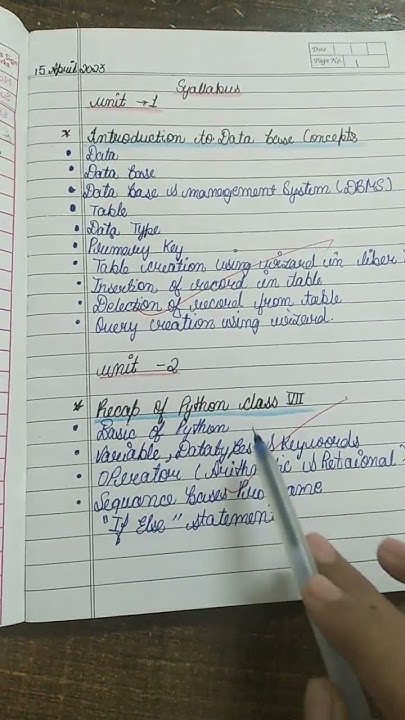 Date
Page No.
15 April 2023
Syallabus
Unit → 1
* Introduction to Data base Concepts
• Data
• Data base
• Data Base is management System (DBMS)
• Table
• Data Type
• Primary Key
• Table creation using wizard in liber
• Insertion of record in table
• Delection of record from table
• Query creation using wizard.
Unit - 2
* Recap of Python class VII
• Basic of Python
• Variable, Keywoords
• Operator (
• Sequance
"If Else" Statement